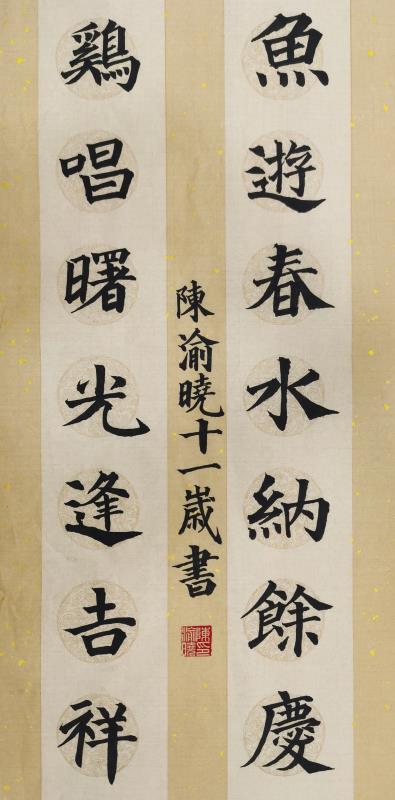 魚遊春水納餘慶
鷄唱曙光逢吉祥
陳渝曉十一歲書
陳渝曉印